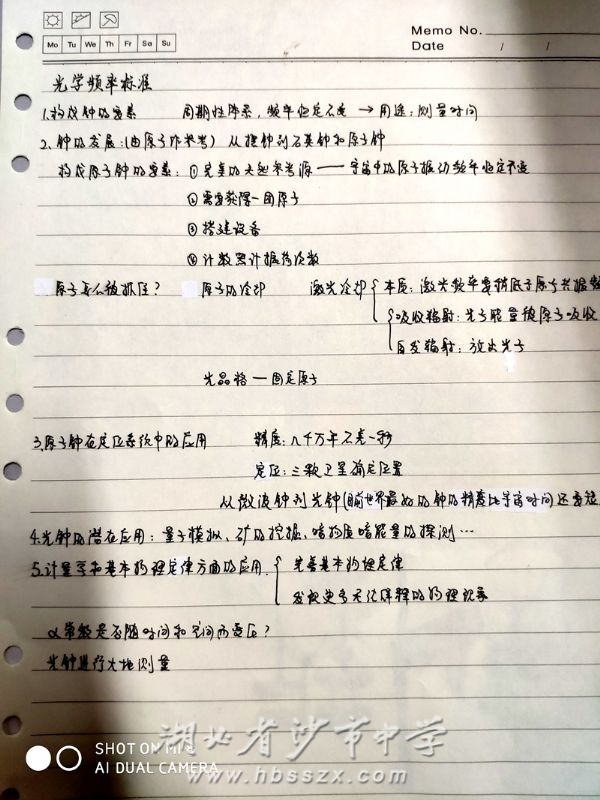 Memo No.
Mo Tu We Th Fr Sa Su
Date / /
光学频率标准
1.构成钟的要素 周期性体系,频率恒定不变 → 用途:测量时间
2.钟的发展:(由原子作参考) 从摆钟到石英钟和原子钟
构成原子钟的要素:①完美的天然参考源——宇宙中的原子振动频率恒定不变
②需要获得一团原子
③搭建设备
④计数累计振荡次数
原子怎么被抓住? 原子的冷却 激光冷却 本质:激光频率要稍低于原子共振频
吸收辐射:光子能量被原子吸收
自发辐射:放出光子
光晶格—固定原子
3.原子钟在定位系统中的应用 精度:几千万年不差一秒
定位:三颗卫星确定位置
从微波钟到光钟(目前世界最好的钟的精度比宇宙时间还要
4.光钟的潜在应用:量子模拟、矿的挖掘,暗物质暗能量的探测…
5.计量学和基本物理定律方面的应用 完善基本物理定律
发现更多无法解释的物理现象
α常数是否随时间和空间而变化?
光钟进行大地测量
SHOT ON MI
AI DUAL CAMERA
湖北省沙市中学
www.hbsszx.com